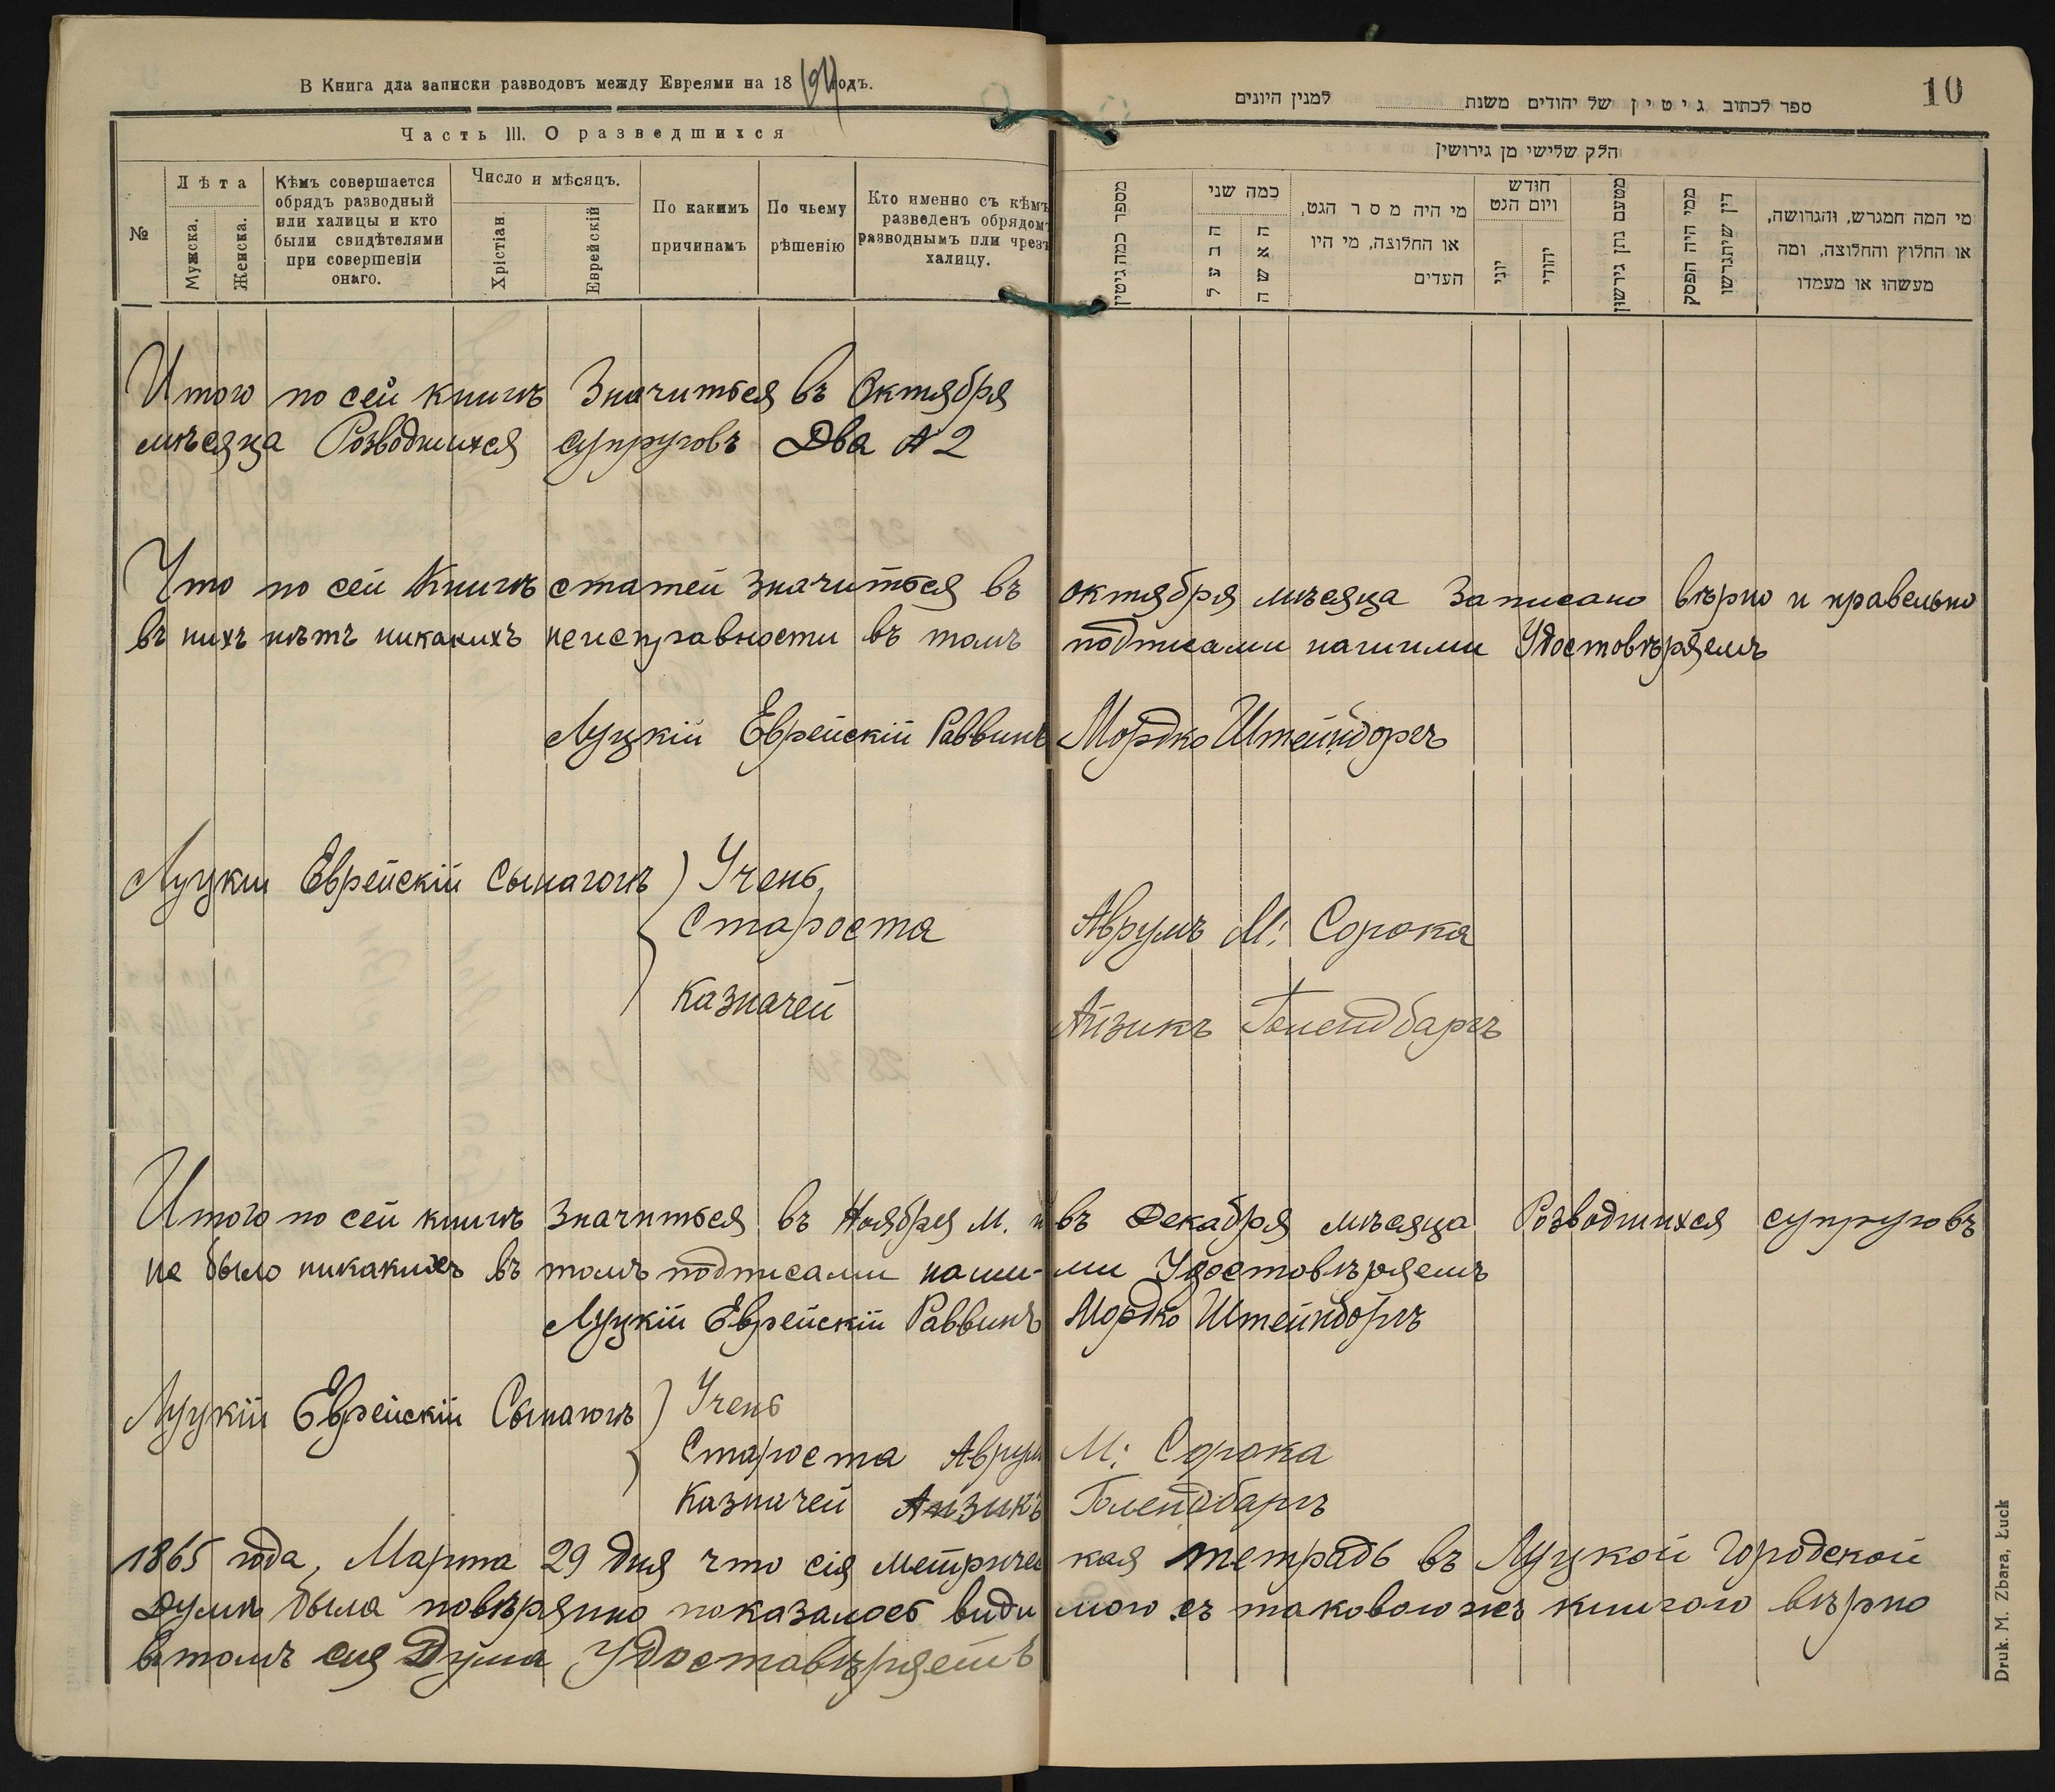 В Книга для записки разводовъ между Евреями на 18 годъ.
Часть III. О разведшихся
№
Лѣта
Мужска.
Женска.
Кѣмъ совершается
обрядъ разводный
или халицы и кто
были свидѣтелями
при совершеніи
онаго.
Число и мѣсяцъ.
Хрістіан.
Еврейскій
По какимъ
причинамъ
По чьему
рѣшенію
Кто именно съ кѣмъ
разведенъ обрядом
разводнымъ пли чрезъ
халицу.
10
ספר לכתוב גיטין של יהודים משנת למנין היונים
חלק שלישי מן גירושין
מספר כמה גיטין
כמה שני
הבעל
האשה
מי היה מסר הגט,
או החלוצה, מי היו
העדים
חודש
ויום הגט
יוני
יהודי
מטעם נתן גירשון
ממי היה הפסק
דין שיתגרשו
מי המה המגרש, והגרושה,
או החלוץ והחלוצה, ומה
מעשהו או מעמדו
Итого по сей книгѣ Значиться въ Октября
мѣсяца Розводшихся супруговъ Два № 2
Что по сей Книгѣ статей значиться въ октября мѣсяца Записано вѣрно и правельно
въ нихъ нѣтъ никакихъ неисправности въ томъ подписами нашими Удостовѣряемъ
Луцкій Еврейскій Раввинъ Мордко Штейндоръ
Луцкій Еврейскій Сынагогъ Учень
Староста Аврумъ М: Сорока
Казначей Айзикъ Голендбаргъ
Итого по сей книгѣ значиться въ Ноября М. и въ Декабря мѣсяца Розводшихся супруговъ
не было никакихъ въ томъ подписами нашими Удостовѣряемъ
Луцкій Еврейскій Раввинъ Мордко Штейндоръ
Луцкій Еврейскій Сынагогъ Учень
Староста Аврум М: Сорока
Казначей Айзикъ Голендбаргъ
1865 года, Марта 29 дня что сія метрическая тетрадь въ Луцкой Городской
Думѣ была повѣряно показалось видимою съ таковоюжъ книгою вѣрно
въ томъ сія Дума Удоставѣряетъ
Druk. M. Zbara, Łuck